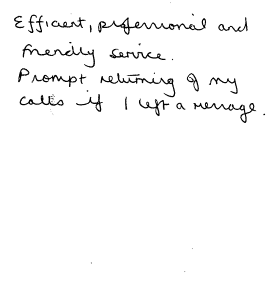 Efficient, professional and
friendly service.
Prompt returning of my
calls if I left a message.